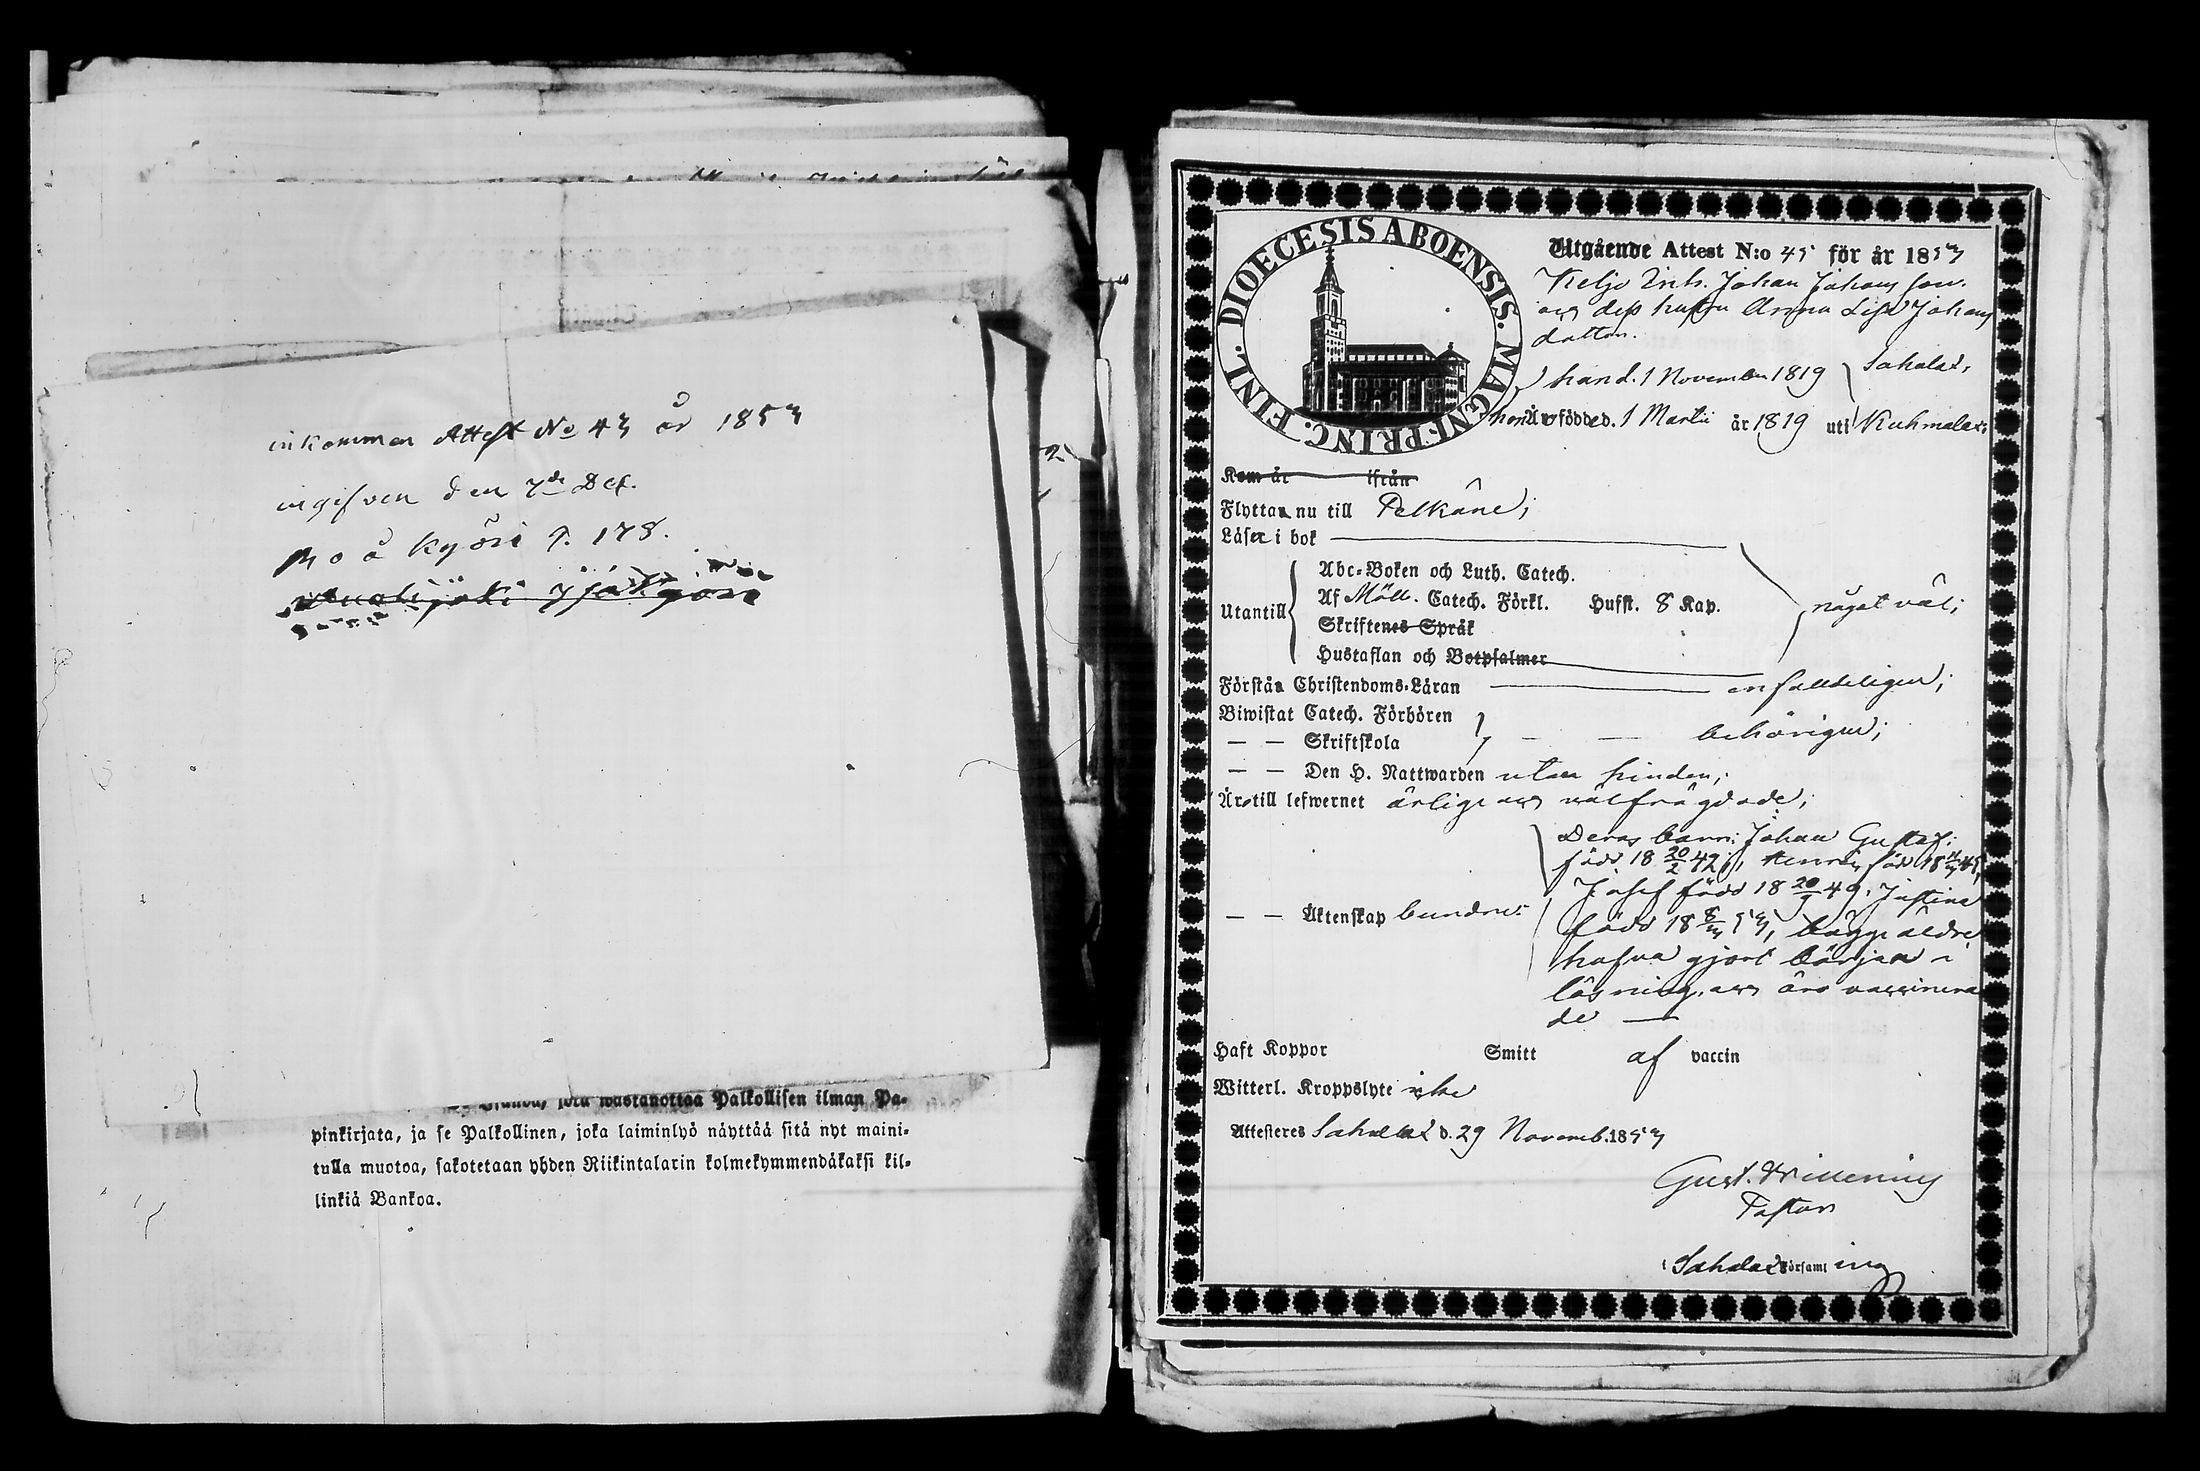 inkommen Attest No 43 år 1853
ingifven den 7de Dec.
Mo å Kyöri p. 178.
Palkollisen ilman Pa-
pinkirjata, ja se Palkollinen, joka laiminlyö näyttää sitä nyt maini-
tulla muotoa, sakotetaan yhden Riikintalarin kolmekymmendäkaksi kil-
linkiä Bankoa.
DIOECESIS ABOENSIS. MAGNI. PRINC. FINL.
Utgående Attest N:o 45 för år 1853
Johan Johans son.
och dess hustru Anna Lisa Johans
dotter.
han d. 1 November 1819 Sahalax,
hon Är född d. 1 Martii år 1819 uti Kuhmalax;
Kom år ifrån
Flytta nu till Pelkäne;
Läser i bok
Abc-Boken och Luth. Catech.
Utantill Af Möll. Catech. Förkl. Husst. 8 Kap. något väl;
Skriftenes Språk
Hustaflan och Botpsalmer
Förstå Christendoms-Läran enfaldeligen;
Biwistat Catech. Förhören
— — Skriftskola — — behörigen;
— — Den H. Nattwarden utan hinder;
Äro till lefwernet ärlige och välfrägdade;
Deras barn: Johan Gustaf:
född 18 20/2 42, Henric född
Josef född 18 20/9 49, Justina
— — Äktenskap bundne:
född 18 8/3 53, bägge äldre
hafva gjort början i
läsning, och äro vaccinera
de —
Haft Koppor Smitt af vaccin
Witterl. Kroppslyte icke
Attesteres Sahalax d. 29 Novemb. 1853
Gust. Willenius
Pastor
i Sahalax Församling